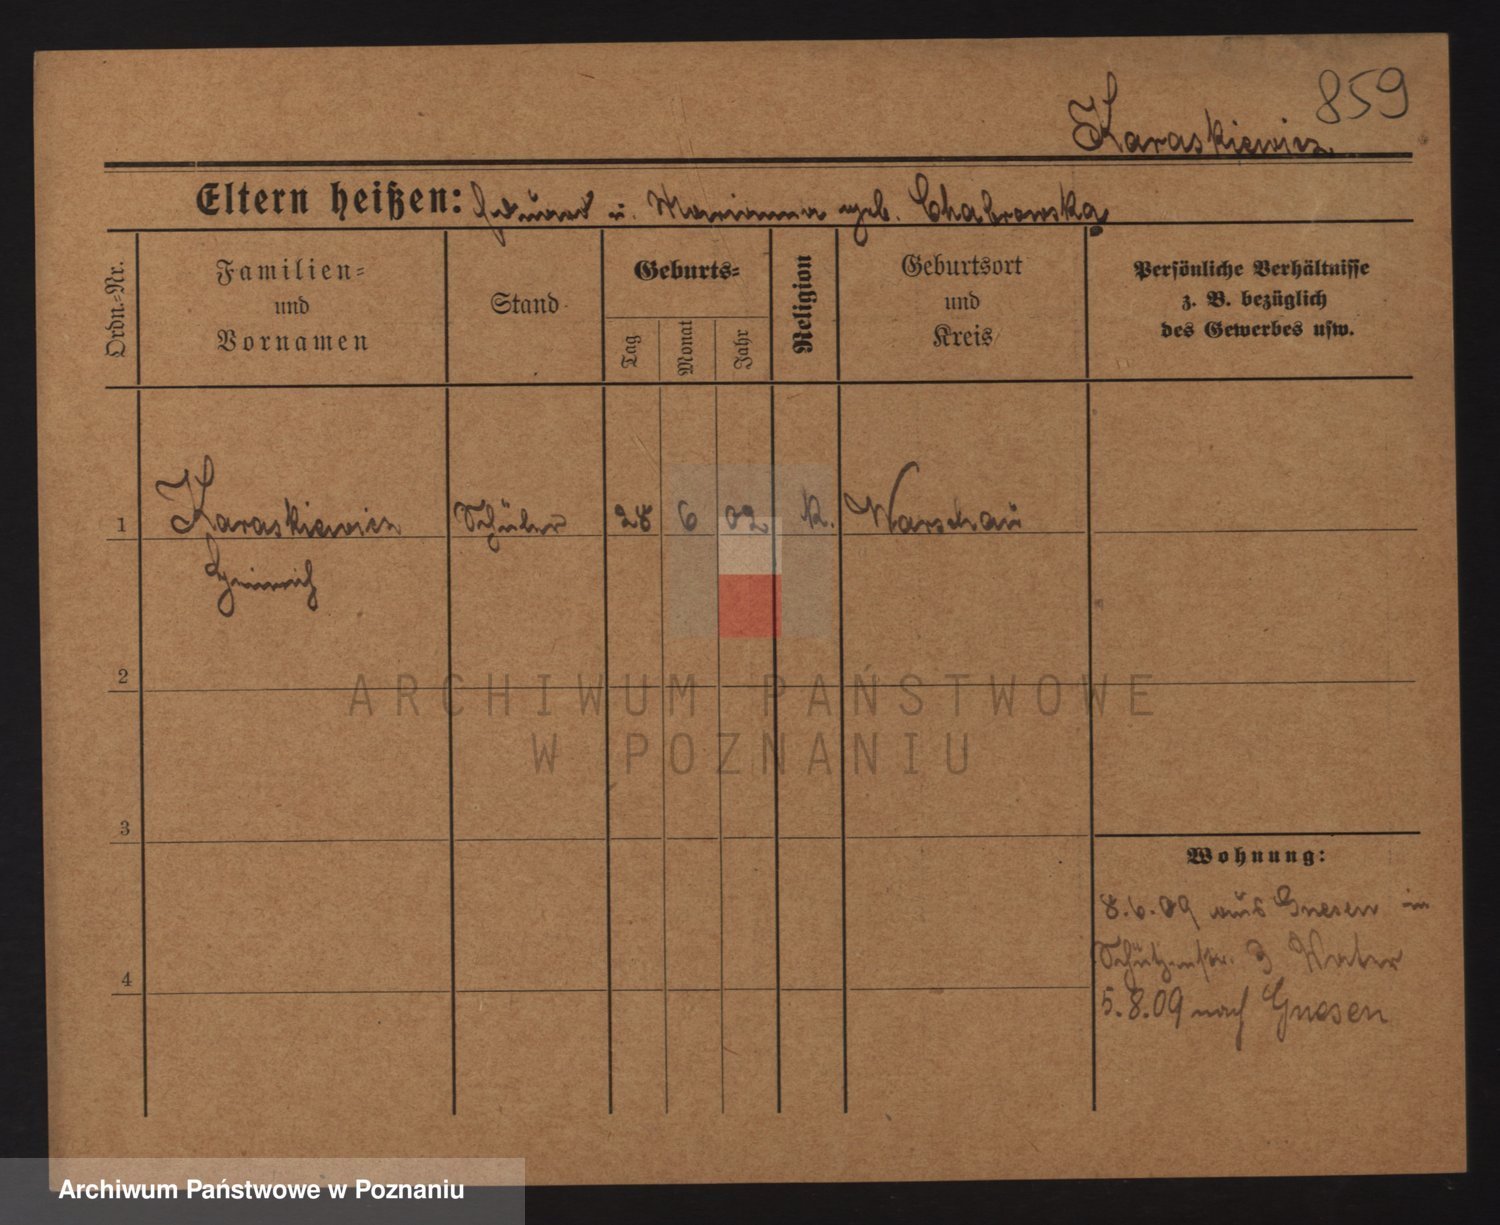 859
Karaskiewicz
Eltern heißen: Eduard u. Marianna geb. Chabrowska
Ordn.-Nr.
Familien-
und
Vornamen
Stand
Geburts-
Tag
Monat
Jahr
Religion
Geburtsort
und
Kreis
Persönliche Verhältnisse
z. B. bezüglich
des Gewerbes usw.
1 Karaskiewicz Schüler 28 6 02 k. Warschau
Heinrich
2
3
4
Wohnung:
8.6.09 aus Gnesen in
Schützenstr. 3
5.8.09 nach Gnesen
ARCHIWUM PAŃSTWOWE
W POZNANIU
Archiwum Państwowe w Poznaniu